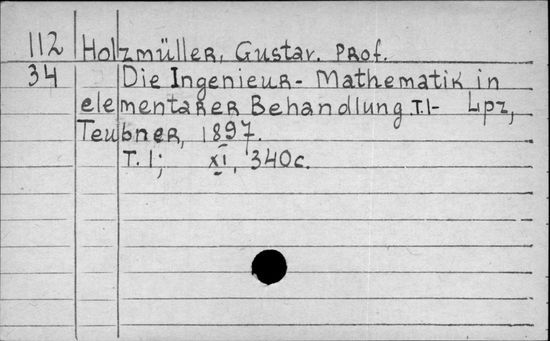 112 Holzmüller, Gustav. Prof.
34 Die Ingenieur- Mathematik in
elementarer Behandlung T.I- Lpz,
Teubner, 1897.
T. I; XI, 340c.